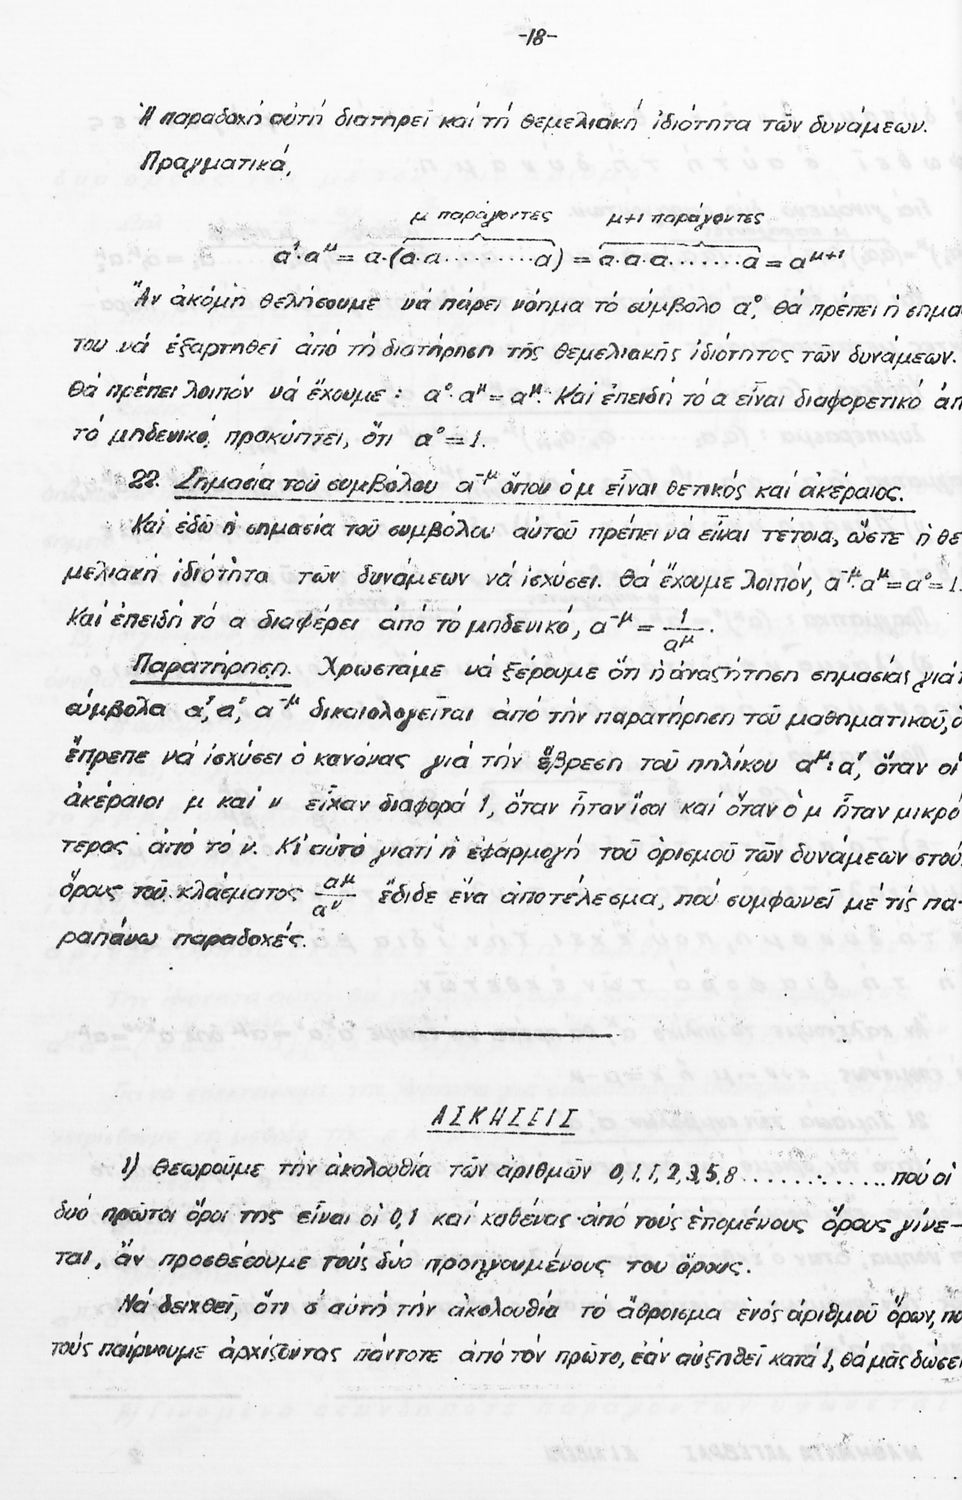 -18-
Ἡ παραδοχή αὐτή διατηρεῖ καί τή θεμελιακή ἰδιότητα τῶν δυνάμεων.
Πραγματικά,
μ παράγοντες μ+1 παράγοντες
a¹·aᵘ = a·(a·a·········a) = a·a·a.......a = aᵘ⁺¹
Ἄν ἀκόμη θελήσουμε νά πάρει νόημα τό σύμβολο a⁰, θά πρέπει ἡ σημα
του νά ἐξαρτηθεῖ ἀπό τή διατήρηση τῆς θεμελιακῆς ἰδιότητος τῶν δυνάμεων.
Θά πρέπει λοιπόν νά ἔχουμε : a⁰·aᵘ = aᵘ. Καί ἐπειδή τό a εἶναι διαφορετικό ἀπ
τό μηδενικό, προκύπτει, ὅτι a⁰ = 1.
22. Σημασία τοῦ συμβόλου a⁻ᵘ ὅπου ὁ μ εἶναι θετικός καί ἀκέραιος.
Καί ἐδῶ ἡ σημασία τοῦ συμβόλου αὐτοῦ πρέπει νά εἶναι τέτοια, ὥστε ἡ θε
μελιακή ἰδιότητα τῶν δυνάμεων νά ἰσχύσει. Θά ἔχουμε λοιπόν, a⁻ᵘ·aᵘ = a⁰ = 1.
Καί ἐπειδή τό a διαφέρει ἀπό τό μηδενικό, a⁻ᵘ = 1/aᵘ.
Παρατήρηση. Χρωστάμε νά ξέρουμε ὅτι ἡ ἀναζήτηση σημασίας γιά
σύμβολα a¹, a⁰, a⁻ᵘ δικαιολογεῖται ἀπό τήν παρατήρηση τοῦ μαθηματικοῦ, ὅ
ἔπρεπε νά ἰσχύσει ὁ κανόνας γιά τήν εὕρεση τοῦ πηλίκου aᵘ : aᵛ, ὅταν οἱ
ἀκέραιοι μ καί ν εἶχαν διαφορά 1, ὅταν ἦταν ἴσοι καί ὅταν ὁ μ ἦταν μικρό
τερος ἀπό τό ν. Κι αὐτό γιατί ἡ ἐφαρμογή τοῦ ὁρισμοῦ τῶν δυνάμεων στούς
ὅρους τοῦ κλάσματος aᵘ/aᵛ ἔδιδε ἕνα ἀποτέλεσμα, πού συμφωνεῖ μέ τίς πα-
ραπάνω παραδοχές.
ΑΣΚΗΣΕΙΣ
1) Θεωροῦμε τήν ἀκολουθία τῶν ἀριθμῶν 0,1,1,2,3,5,8.............. πού οἱ
δυό πρῶτοι ὅροι της εἶναι οἱ 0,1 καί καθένας ἀπό τούς ἑπομένους ὅρους γίνε-
ται, ἄν προσθέσουμε τούς δυό προηγουμένους του ὅρους.
Νά δειχθεῖ, ὅτι σ' αὐτή τήν ἀκολουθία τό ἄθροισμα ἑνός ἀριθμοῦ ὅρων, πο
τούς παίρνουμε ἀρχίζοντας πάντοτε ἀπό τόν πρῶτο, ἐάν αὐξηθεῖ κατά 1, θά μᾶς δώσει